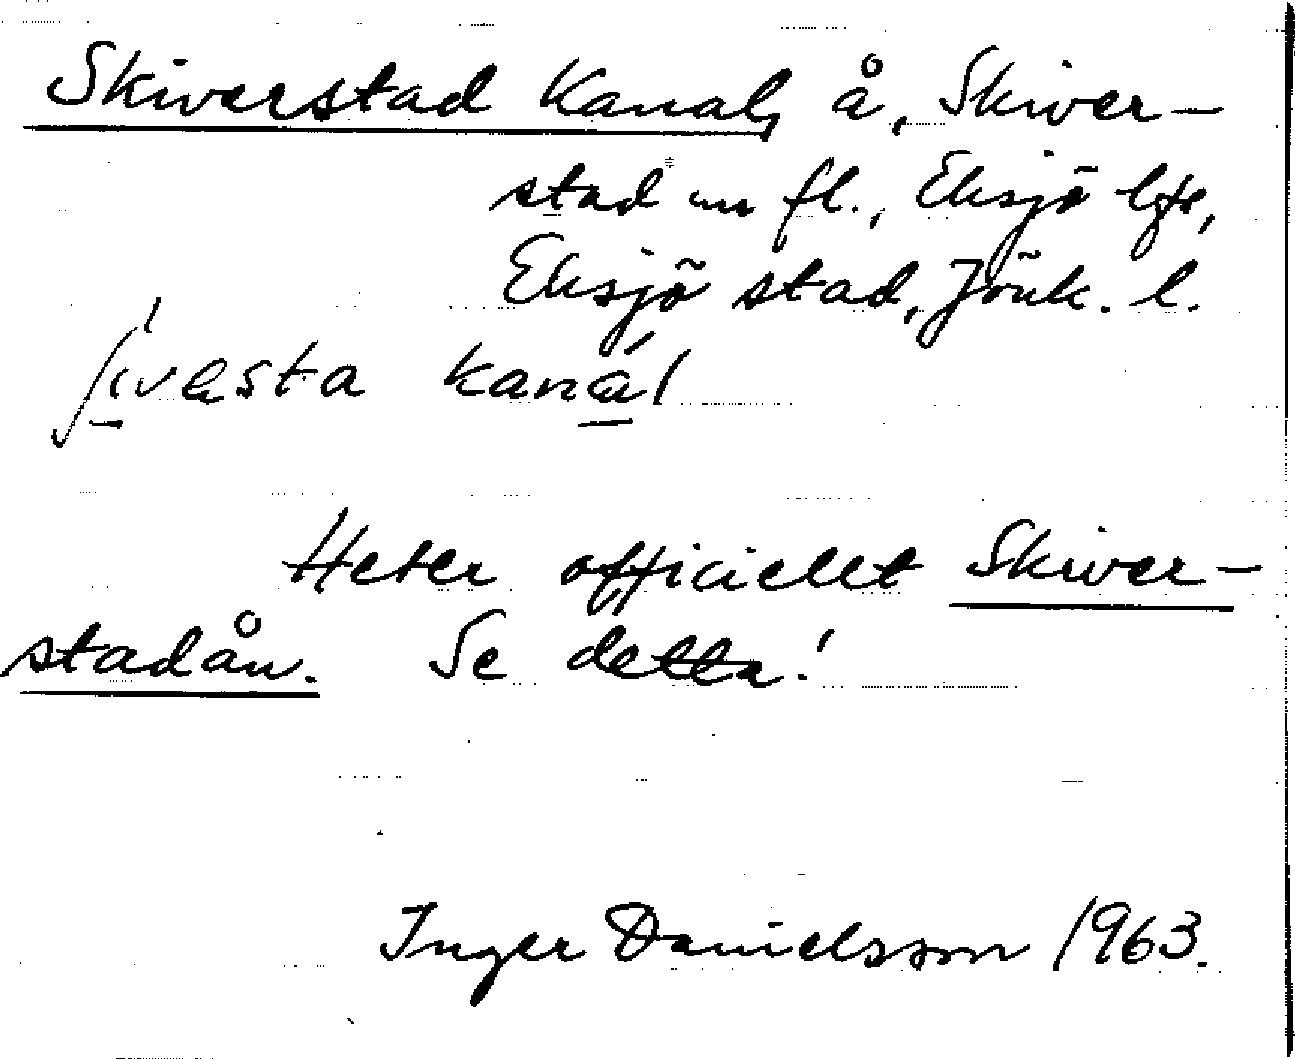 Skiverstad kanal, å, Skiver-
stad m fl., Eksjö lfs,
Eksjö stad, Jönk. l.
ʃìvesta kaná̱l
Heter officiellt Skiver-
stadån. Se detta!
Inger Danielsson 1963.